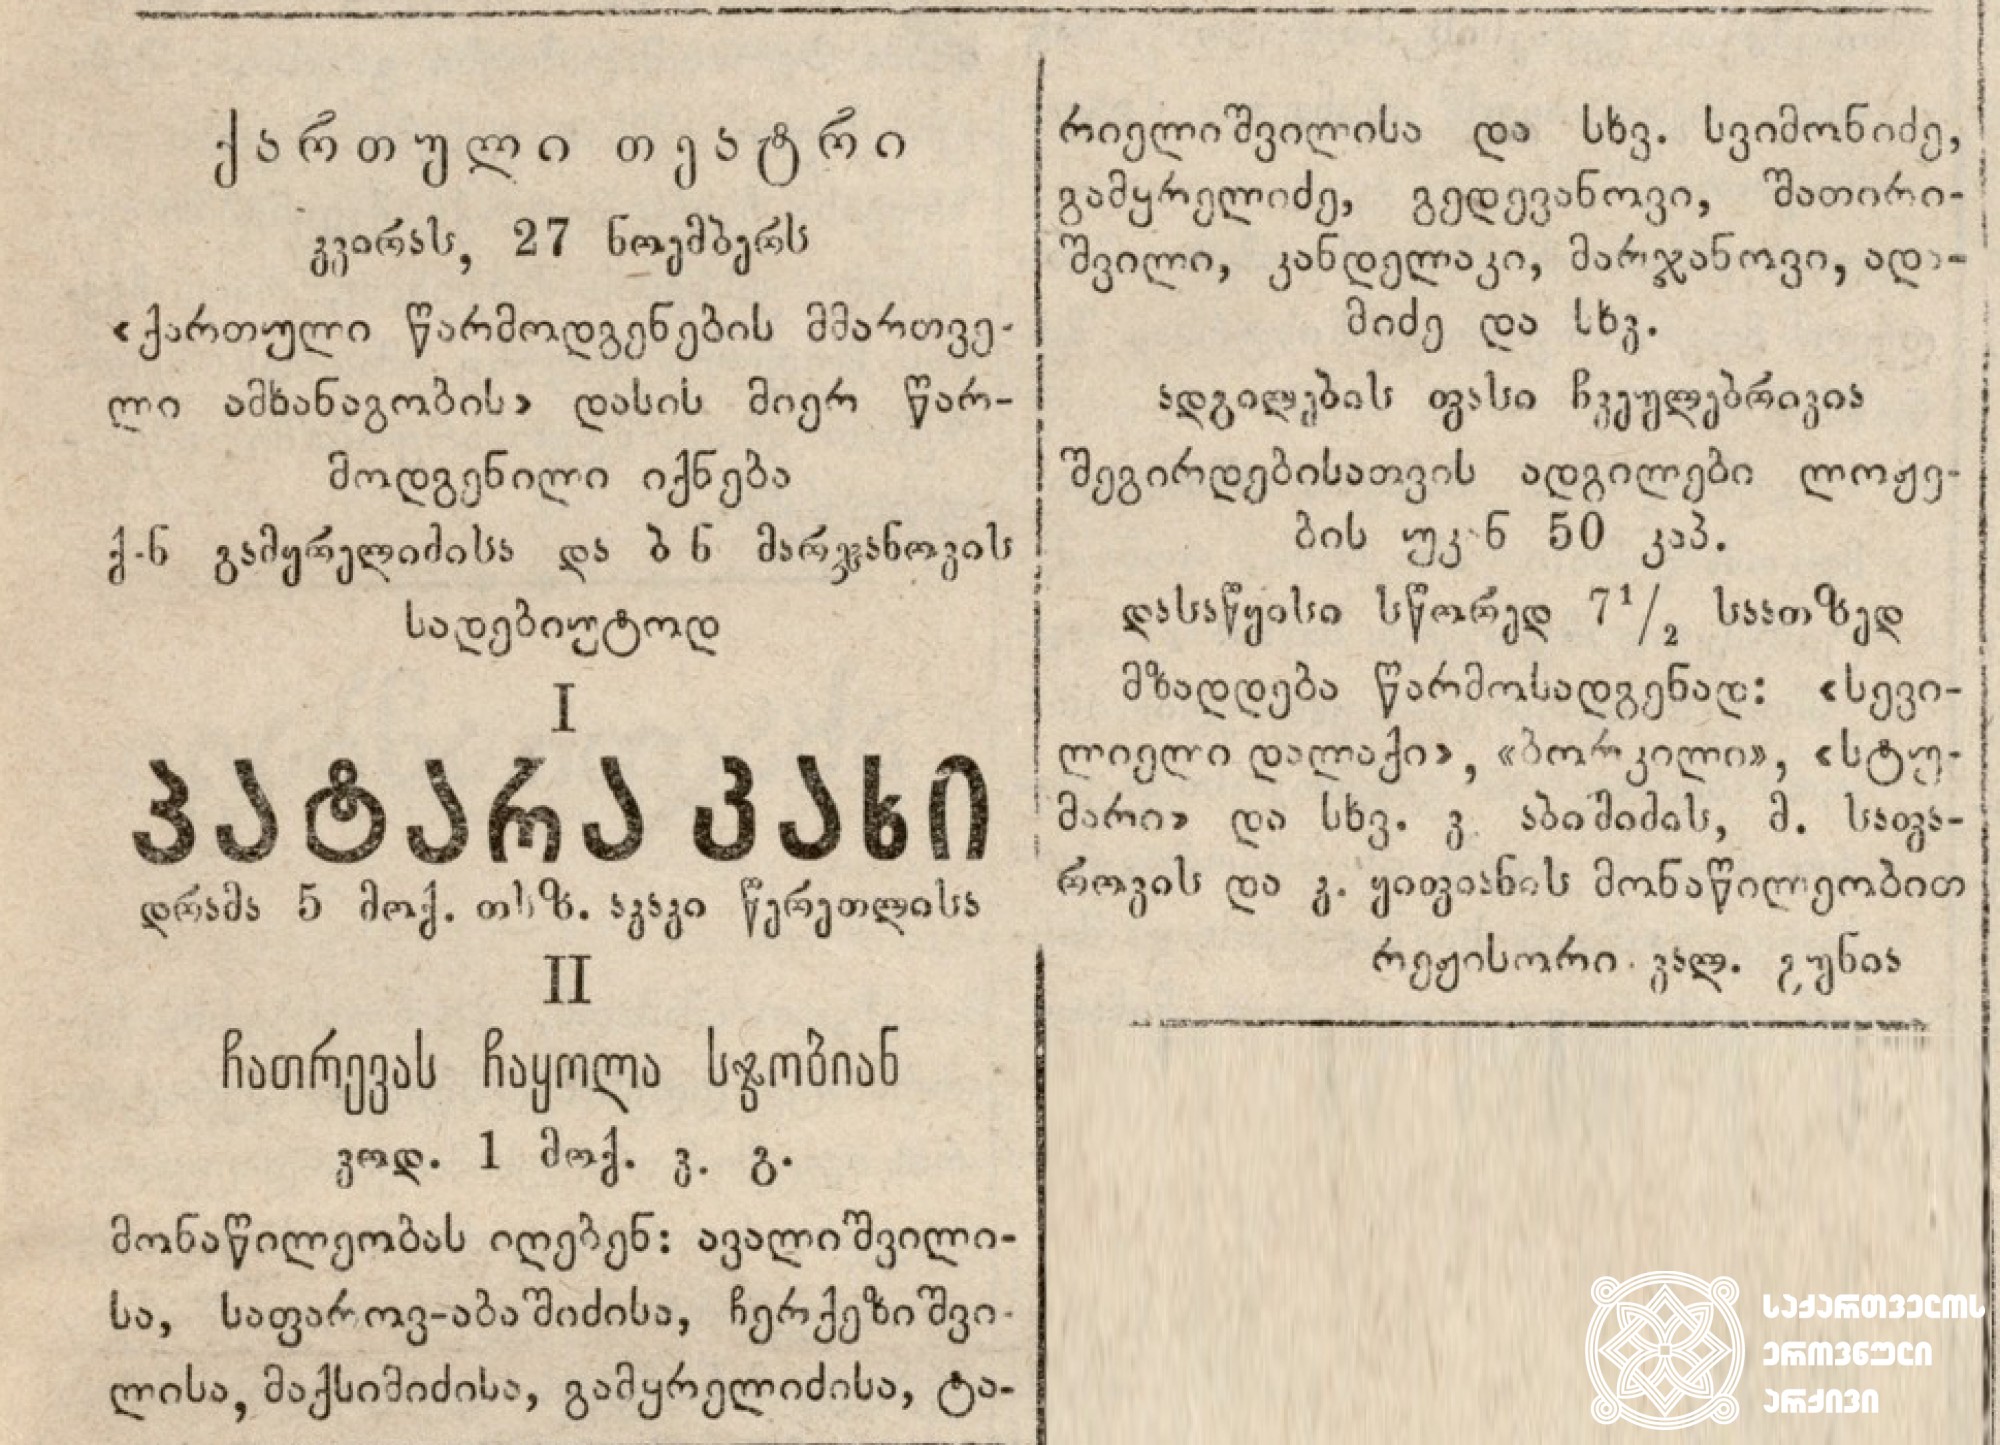 ქართული თეატრი
კვირას, 27 ნოემბერს
«ქართული წარმოდგენების მმართვე-
ლი ამხანაგობის» დასის მიერ წარ-
მოდგენილი იქნება
ქ-ნ გამყრელიძისა და ბ ნ მარჯანოვის
სადებიუტოდ
I
პატარა კახი
დრამა 5 მოქ. თხზ. აკაკი წერეთლისა
II
ჩათრევას ჩაყოლა სჯობიან
კოდ. 1 მოქ. კ. გ.
მონაწილეობას იღებენ: ავალიშვილი-
სა, საფაროვ-აბაშიძისა, ჩერქეზიშვი-
ლისა, მაქსიმიძისა, გამყრელიძისა, ტა-
რიელიშვილისა და სხვ. სვიმონიძე,
გამყრელიძე, გედევანოვი, შათირი-
შვილი, კანდელაკი, მარჯანოვი, ადა-
მიძე და სხვ.
ადგილების ფასი ჩვეულებრივია
შეგირდებისათვის ადგილები ლოჟე-
ბის უკ-ნ 50 კაპ.
დასაწყისი სწორედ 7 1/2 საათზედ
მზადდება წარმოსადგენად: «სევი-
ლიელი დალაქი», «ბორკილი», «სტუ-
მარი» და სხვ. ვ. აბაშიძის, მ. საფა-
როვის და კ. ყიფიანის მონაწილეობით
რეჟისორი ვალ. გუნია
საქართველოს
ეროვნული
არქივი